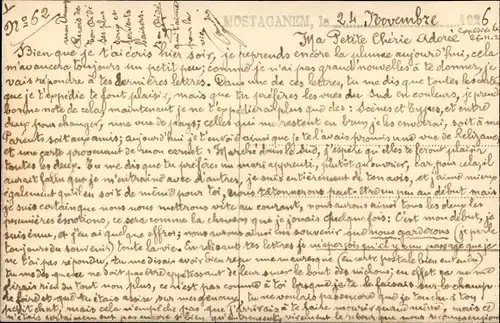 N° 62
MOSTAGANEM, le 24 Novembre 1926
Ma Petite Chérie Adorée
Bien que je t'ai écris hier soir, je reprends encore la plume aujourd'hui, cela
m'avancera toujours un petit peu; comme je n'ai pas grand'nouvelles à te donner, je
vais repondre à tes dernières lettres. Dans une de ces lettres, tu me dis que toutes les cartes
que je t'expédie te font plaisir, mais que tu préfères les vues du Sud en couleurs, je prends
bonne note de cela, maintenant je ne t'expédierai plus que des: Scènes et Types, et entre
deux pour changer, une vue de pays; celles qui me restent en brun, je les enverrai, soit à mes
Parents soit aux amis; aujourd'hui je t'envoie ainsi que je te l'avais promis une vue de Relizane
et une vert provenant de mon carnet: Marché dans le Sud, j'espère qu'elles te feront plaisir
toutes les deux. Tu me dis que tu préfères un mari apprenti, plutôt qu'ouvrier, car pour cela, il
aurait fallu que je m'entraîne avec d'autres, je suis entièrement de ton avis, et j'aime mieux
également qu'il en soit de même pour toi, nous tâtonnerons peut-être un peu au début mais
je suis certain que nous nous mettrons vite au courant, nous aurons ainsi tous les deux les
premières émotions, ce sera comme la chanson que je jouais quelque fois: C'est mon début, je
suis ému, et j'ai quelque effroi; nous aurons ainsi un souvenir que nous garderons (je parle
toujours du souvenir) toute la vie. En relisant tes lettres je m'aperçois qu'il y a un passage que je
ne t'ai pas répondu, tu me disais avoir bien reçu une mauresque (en carte postale bien entendu)
tu me dis que ce ne doit pas être appétissant de leur sucer le bout des nichons; en effet ça ne me
dirais rien du tout non plus, ce n'est pas comme à toi lorsque je te le faisais sur le champ
de foire et que tu étais assise sur mes genoux, tu ne voulais pas encore que je touche à ton
petit chat, mais cela n'empêche pas que j'arrivais à le faire mourir quand même, mais c'